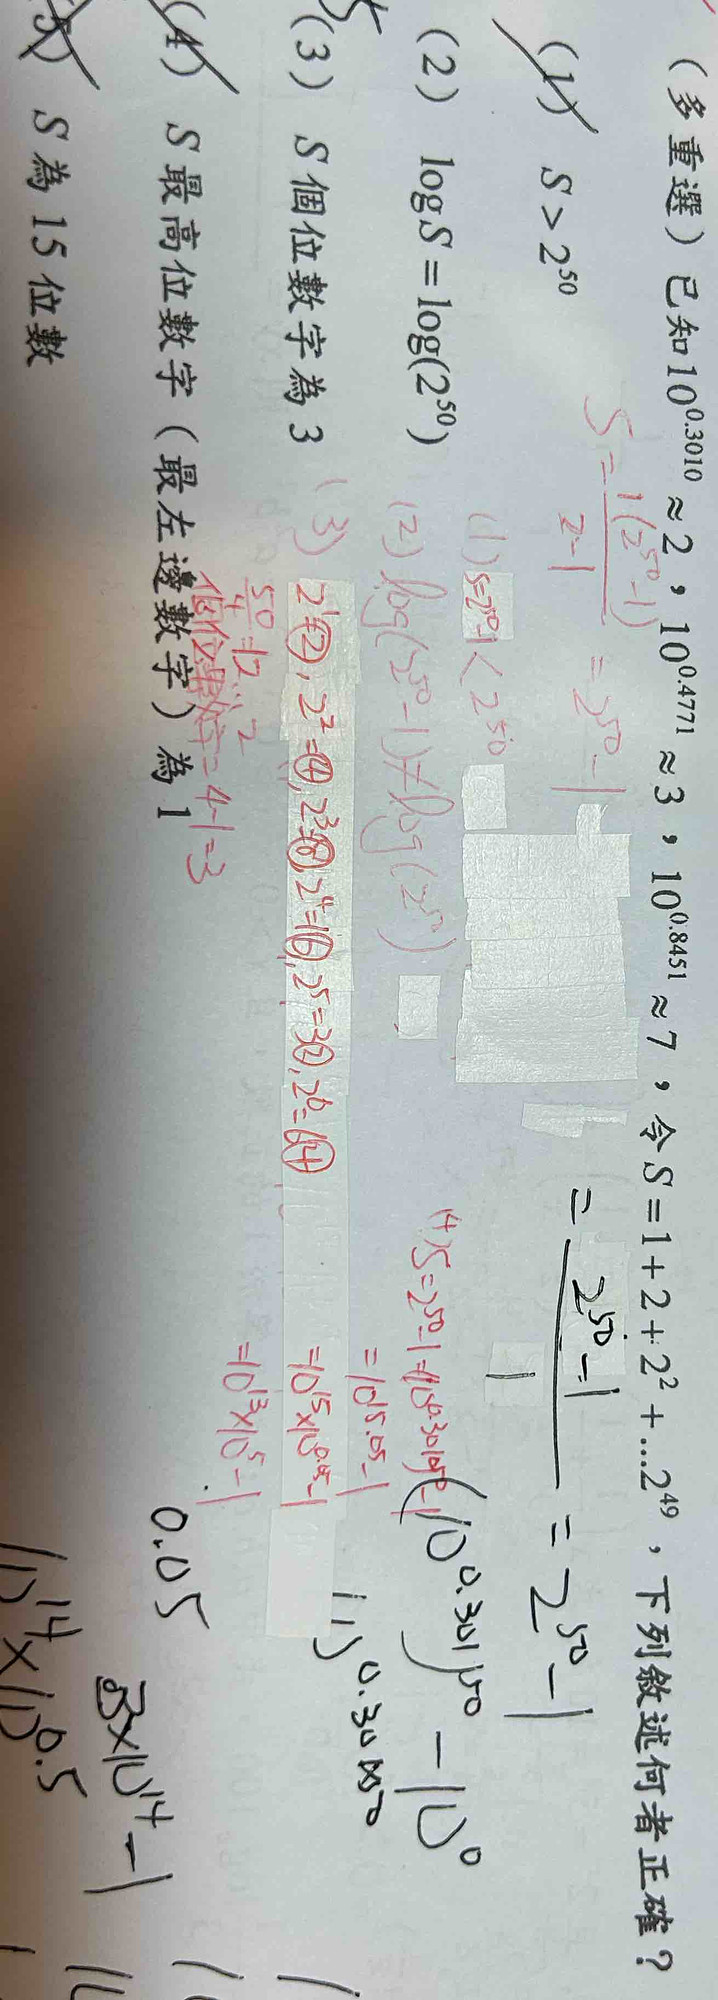 (多重選) 已知 10^0.3010 ≈ 2,10^0.4771 ≈ 3,10^0.8451 ≈ 7,令 S = 1 + 2 + 2² + ...2^49,下列敘述何者正確?
S = 1(2^50 - 1) / 2-1 = 2^50 - 1
= 2^50 - 1 / 1 = 2^50 - 1
(1) S > 2^50
(1) S=2^50-1 < 2^50
(2) log S = log(2^50)
(2) log(2^50-1) ≠ log(2^50)
(4) S = 2^50-1 = (10^0.3010)^50-1
= 10^15.05-1
= 10^15 × 10^0.05-1
(10^0.301)^50 - 10^0
(3) S 個位數字為 3
(3) 2^1=2, 2^2=4, 2^3=8, 2^4=16, 2^5=32, 2^6=64
50/4 = 12...2
個位數字=4-1=3
(4) S 最高位數字(最左邊數字)為 1
0.05
3×10^14 - 1
(5) S 為 15 位數
10^14 × 10^0.5